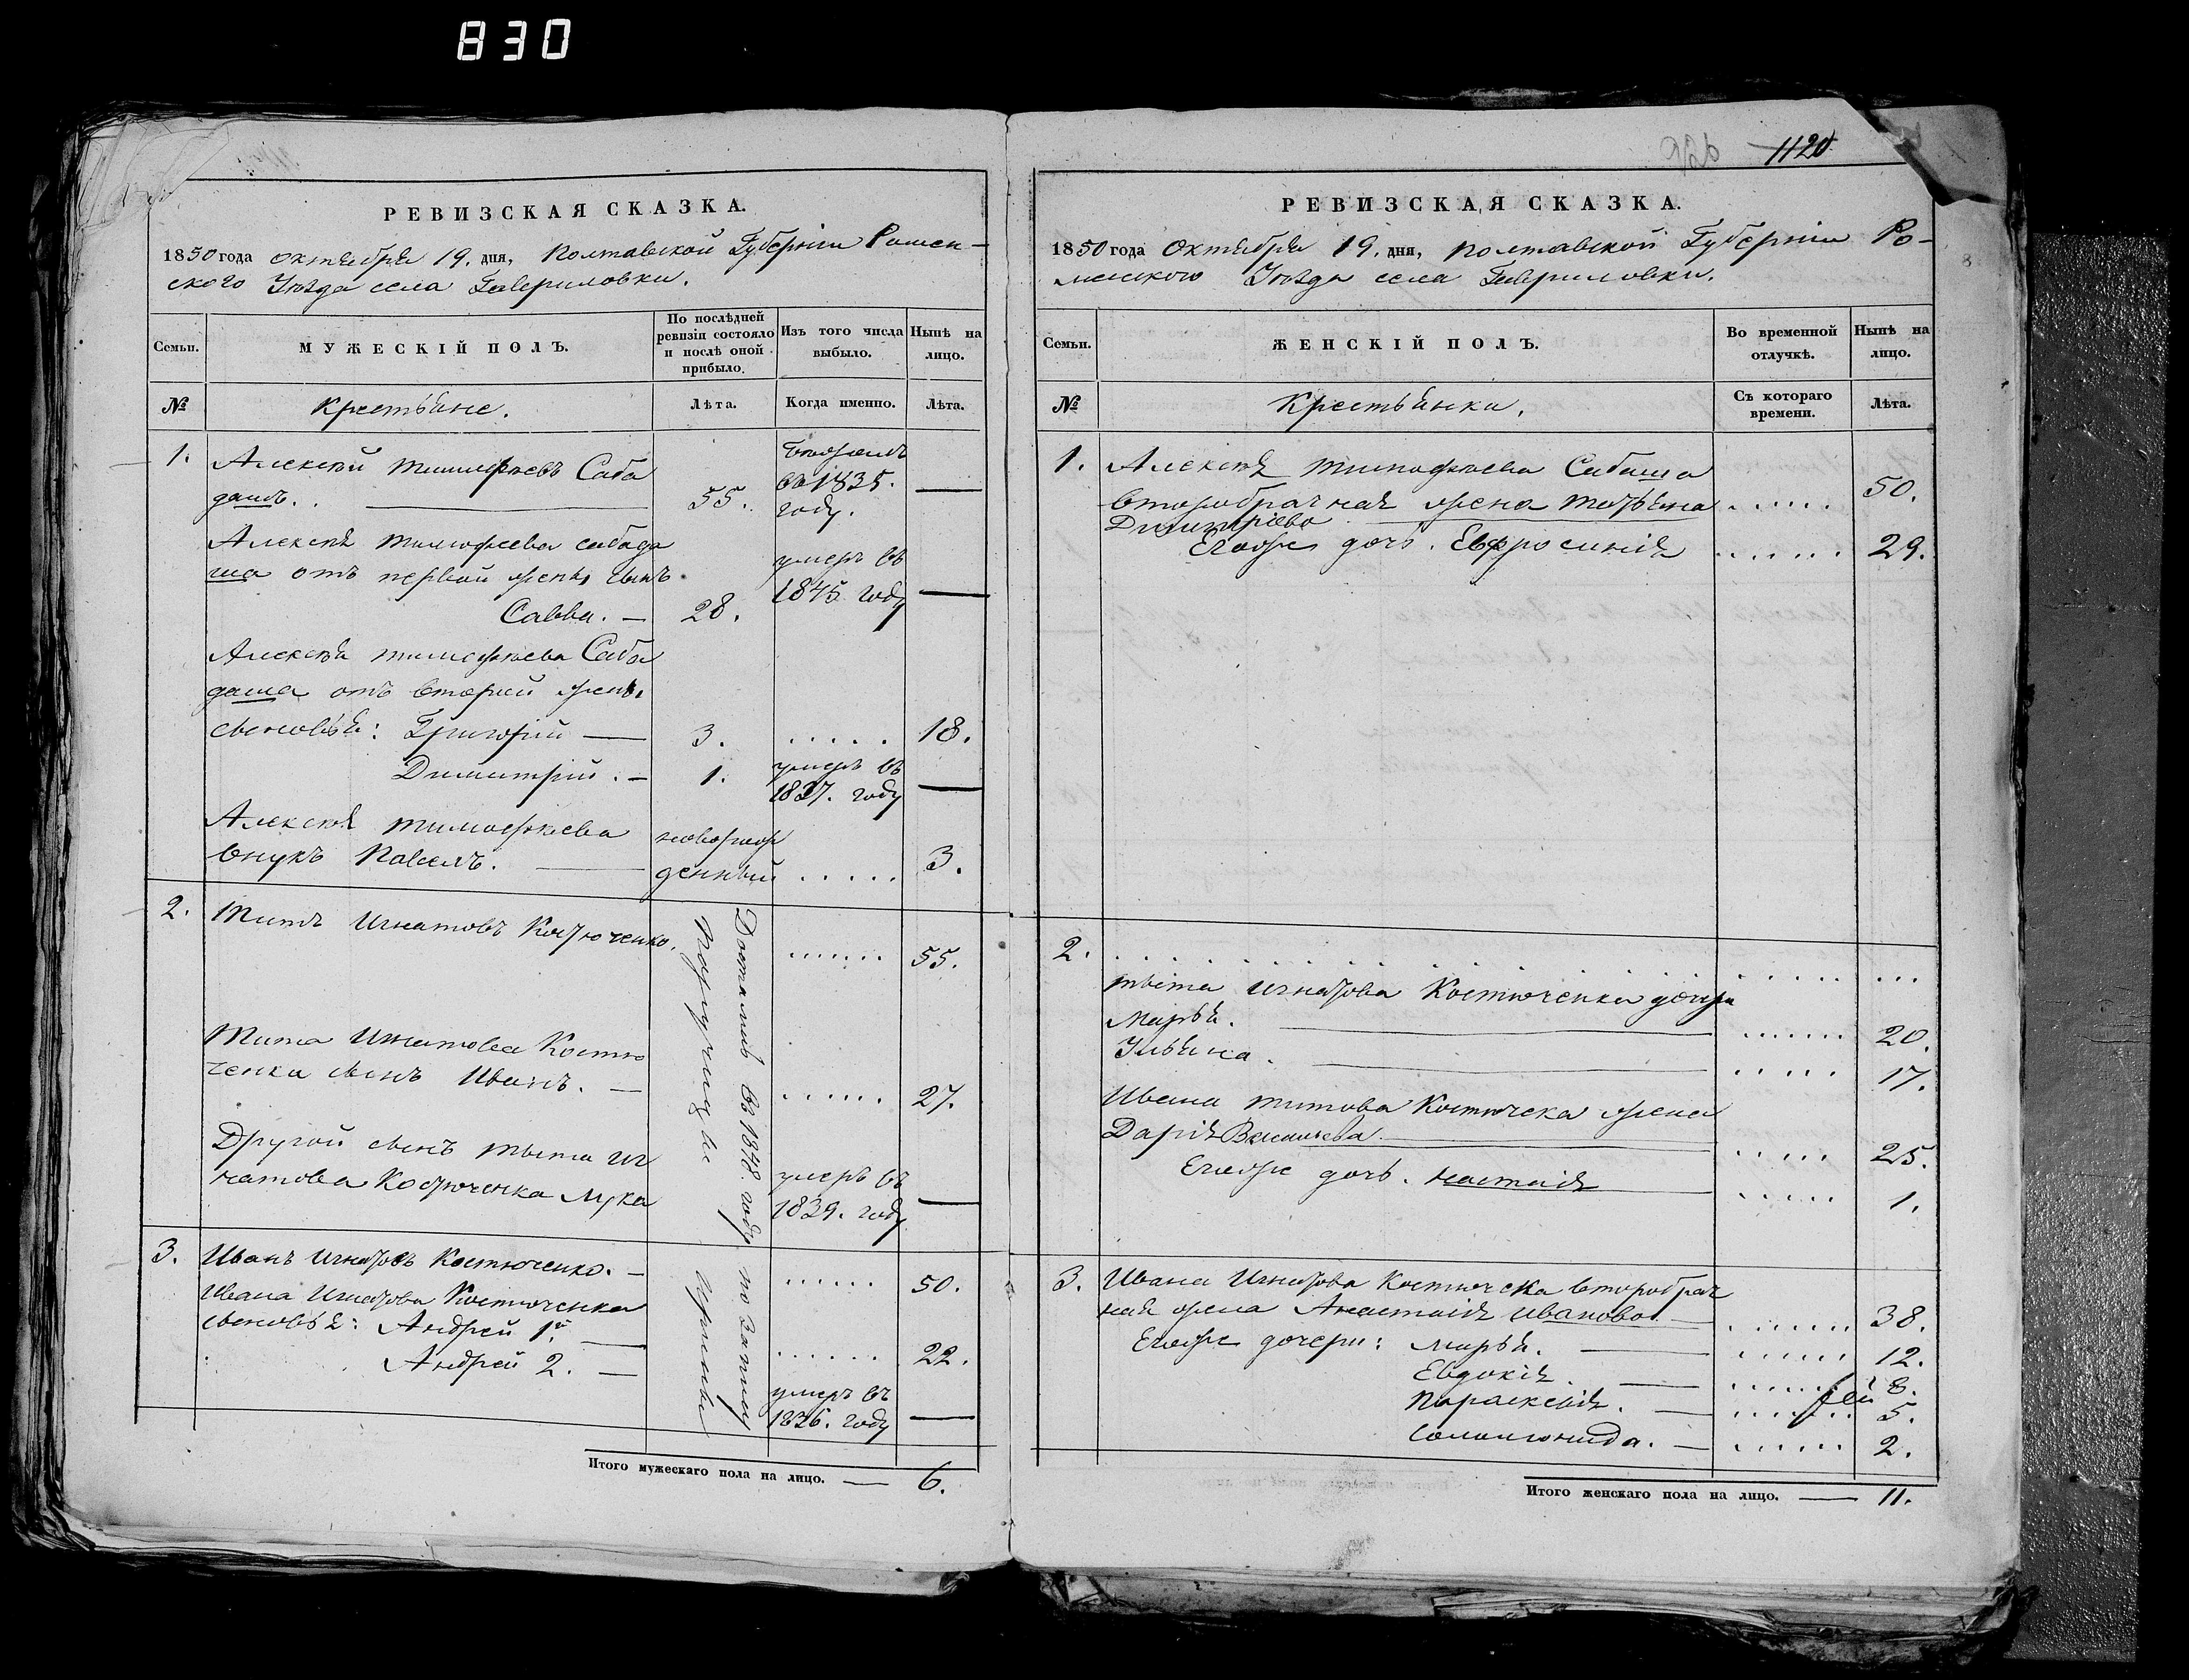 830
РЕВИЗСКАЯ СКАЗКА.
1850 года октября 19. дня, Полтавской Губернiи Ромен-
ского Уѣзда села Гавриловки.
Семьи.
МУЖЕСКIЙ ПОЛЪ.
По послѣдней
ревизiи состояло
и послѣ оной
прибыло.
Изъ того числа
выбыло.
Нынѣ на
лицо.
№
Крестьяне.
Лѣта.
Когда именно.
Лѣта.
1. Алексѣй Тимофѣевъ Саба
дашъ. 55. въ 1835. году. —
Алексѣя Тимофеева Сабада
ша отъ первой жены сынъ
Савва. — 28. умеръ въ 1845 году —
Алексѣя Тимофѣева Саба
даша отъ второй жены
сыновья: Григорiй — 3. ..... 18.
Димитрiй. — 1. умеръ въ 1837. году —
Алексѣя Тимофѣева
внукъ Павелъ. — новорож
денный ..... 3.
2. Титъ Игнатовъ Костюченко. ...... 55.
Тита Игнатова Костю
ченка сынъ Иванъ. — ...... 27.
Другой сынъ Тита Иг
натова Костюченка Лука умеръ въ 1839. году —
Достались въ 1848. году по
3. Иванъ Игнатовъ Костюченко. — ...... 50.
Ивана Игнатова Костюченка
сыновья: Андрей 1й. — ...... 22.
Андрей 2. — умеръ въ 1836. году —
Итого мужескаго пола на лицо. — 6.
1120
РЕВИЗСКАЯ СКАЗКА.
1850 года Октября 19. дня, Полтавской Губернiи Ро-
менского Уѣзда села Гавриловки.
Семьи.
ЖЕНСКIЙ ПОЛЪ.
Во временной
отлучкѣ.
Нынѣ на
лицо.
№
Крестьянки.
Съ котораго
времени.
Лѣта.
1. Алексѣя Тимофѣева
второбрачная жена Татьяна ...... 50.
Димитрiева
Егоже дочь. Евфросинiя ...... 29.
2. ...... ...
Тита Игнатова Костюченка дочери
Марья. — ...... 20.
Ульяна. — ..... 17.
Ивана Титова жена
Дарiя Васильева. — ..... 25.
Егоже дочь. Настасiя ...... 1.
3. Ивана Игнатова второбрач
ная жена Анастасiя Иванова. — ...... 38.
Егоже дочери: Марья. — ...... 12.
Евдокiя. — ...... 8.
Параскевiя. — ...... 5.
Соломонида. — ...... 2.
Итого женскаго пола на лицо. — 11.